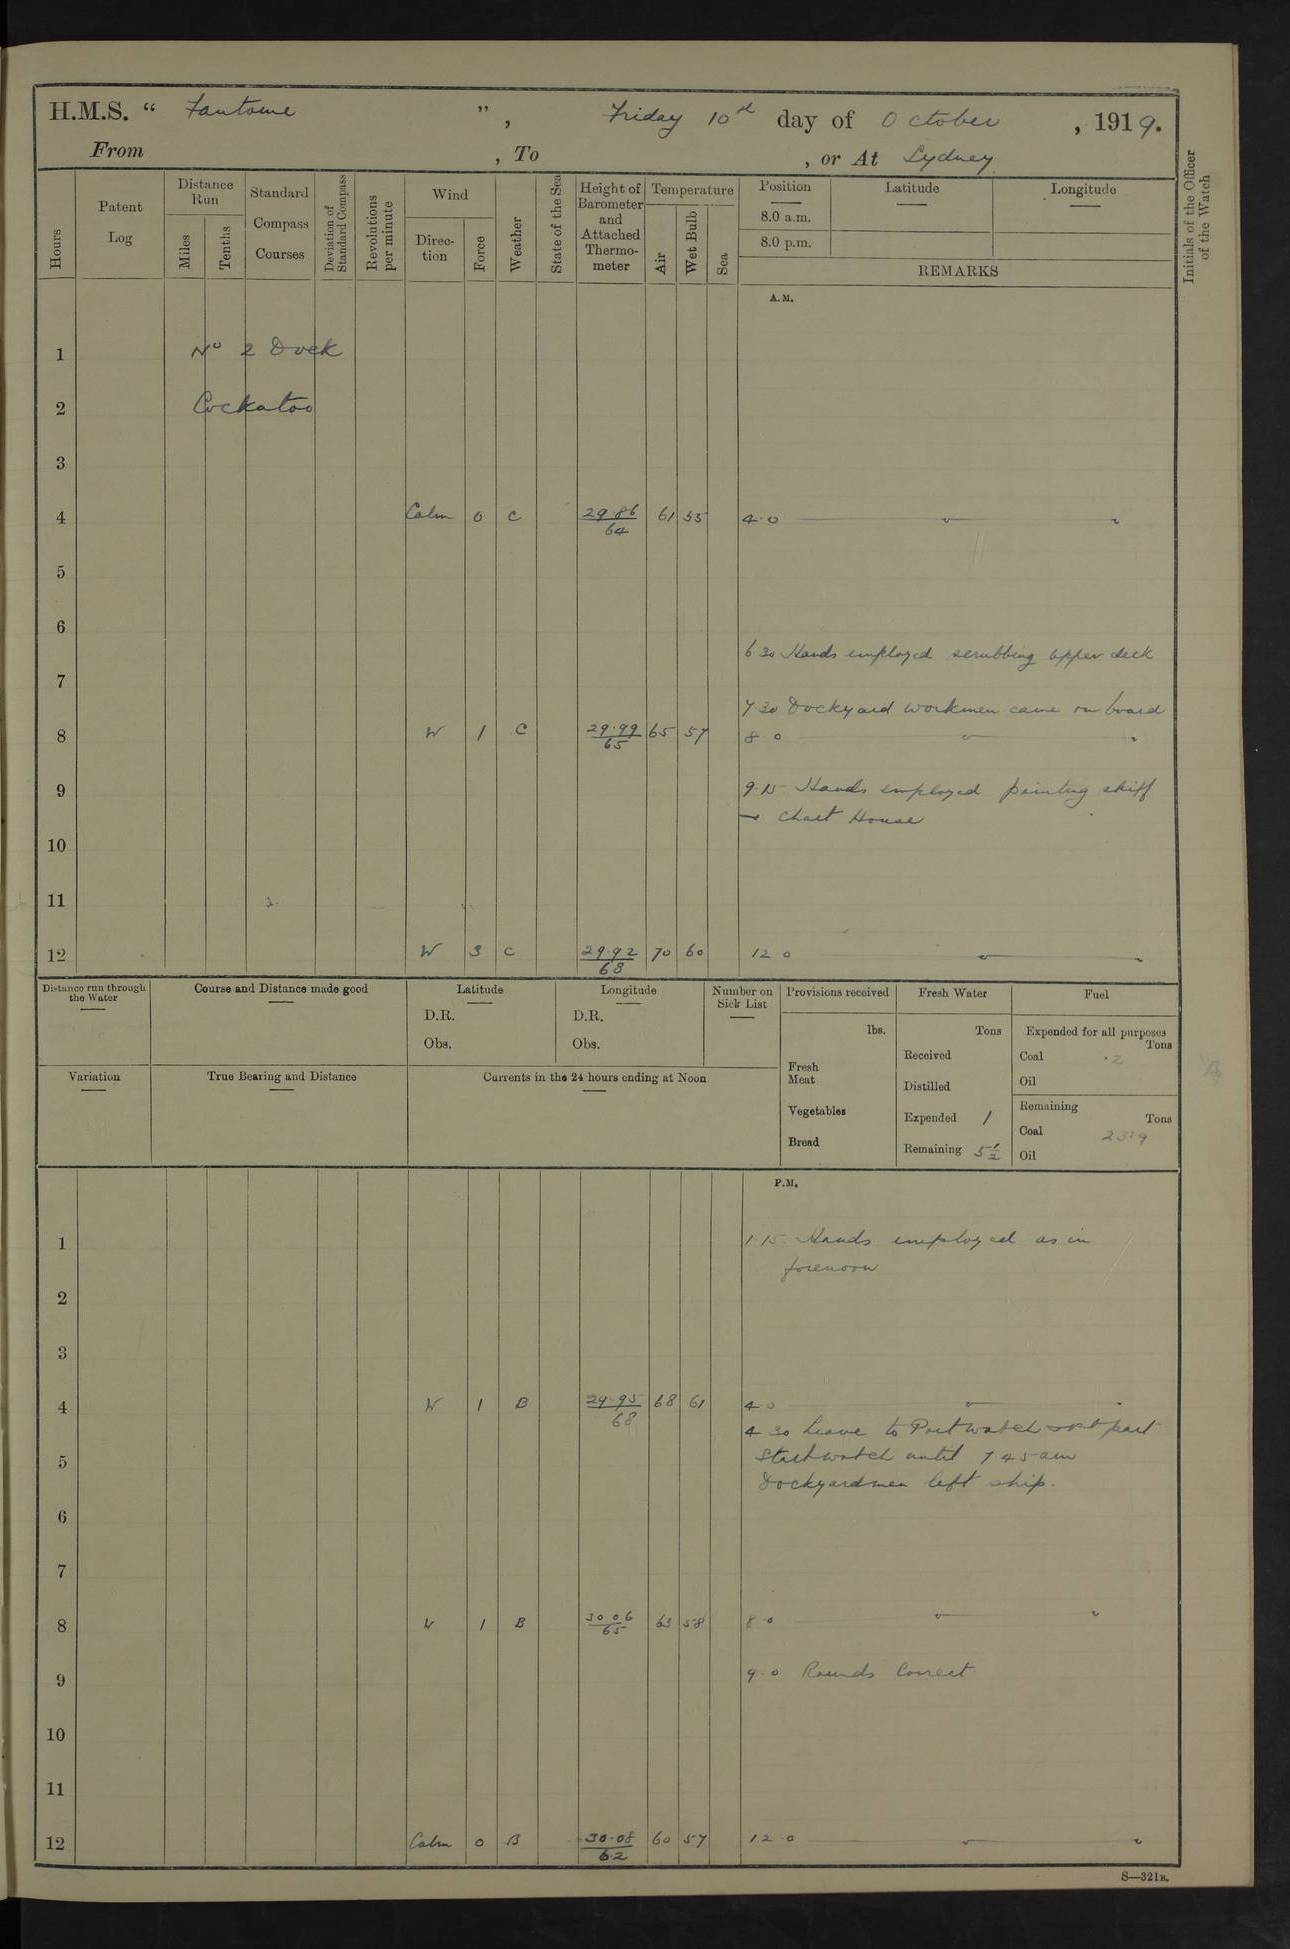 H.M.S. “ Fantome ”, Friday 10th day of October, 1919.
From , To , or At Sydney
Hours
Patent Log
Distance Run
Miles
Tenths
Standard Compass Courses
Deviation of Standard Compass
Revolutions per minute
Wind
Direc-tion
Force
Weather
State of the Sea
Height of Barometer and Attached Thermo-meter
Temperature
Air
Wet Bulb
Sea
Position
8.0 a.m.
8.0 p.m.
Latitude
Longitude
REMARKS
Initials of the Officer of the Watch
A.M.
1 No 2 Dock
2 Cockatoo
3
4 Calm 0 C 29.86 61 55 4.0 " "
64
5
6
6 30 Hands employed scrubbing upper deck
7
7 30 Dockyard workmen came on board
8 W 1 C 29.99 65 57 8 0 " "
65
9 9.15 Hands employed painting skiff
+ Chart House
10
11
12 W 3 C 29.92 70 60 12 0 " "
68
Distance run through the Water
Course and Distance made good
Latitude
D.R.
Obs.
Longitude
D.R.
Obs.
Number on Sick List
Provisions received
lbs.
Fresh Meat
Vegetables
Bread
Fresh Water
Tons
Received
Distilled
Expended 1
Remaining 5 1/2
Fuel
Expended for all purposes
Tons
Coal .2
Oil
Remaining
Tons
Coal
Oil
Variation
True Bearing and Distance
Currents in the 24 hours ending at Noon
P.M.
1 1.15 Hands employed as in
forenoon
2
3
4 W 1 B 29.95 68 61 4 0 "
68
4 30 Leave to Port watch part
5 Starb watch until 7.45 am
Dockyardmen left ship.
6
7
8 W 1 B 30 06 63 58 8 0 " "
65
9 9.0 Rounds Correct
10
11
12 Calm 0 B 30.08 60 57 12 0 " "
62
S—321B.